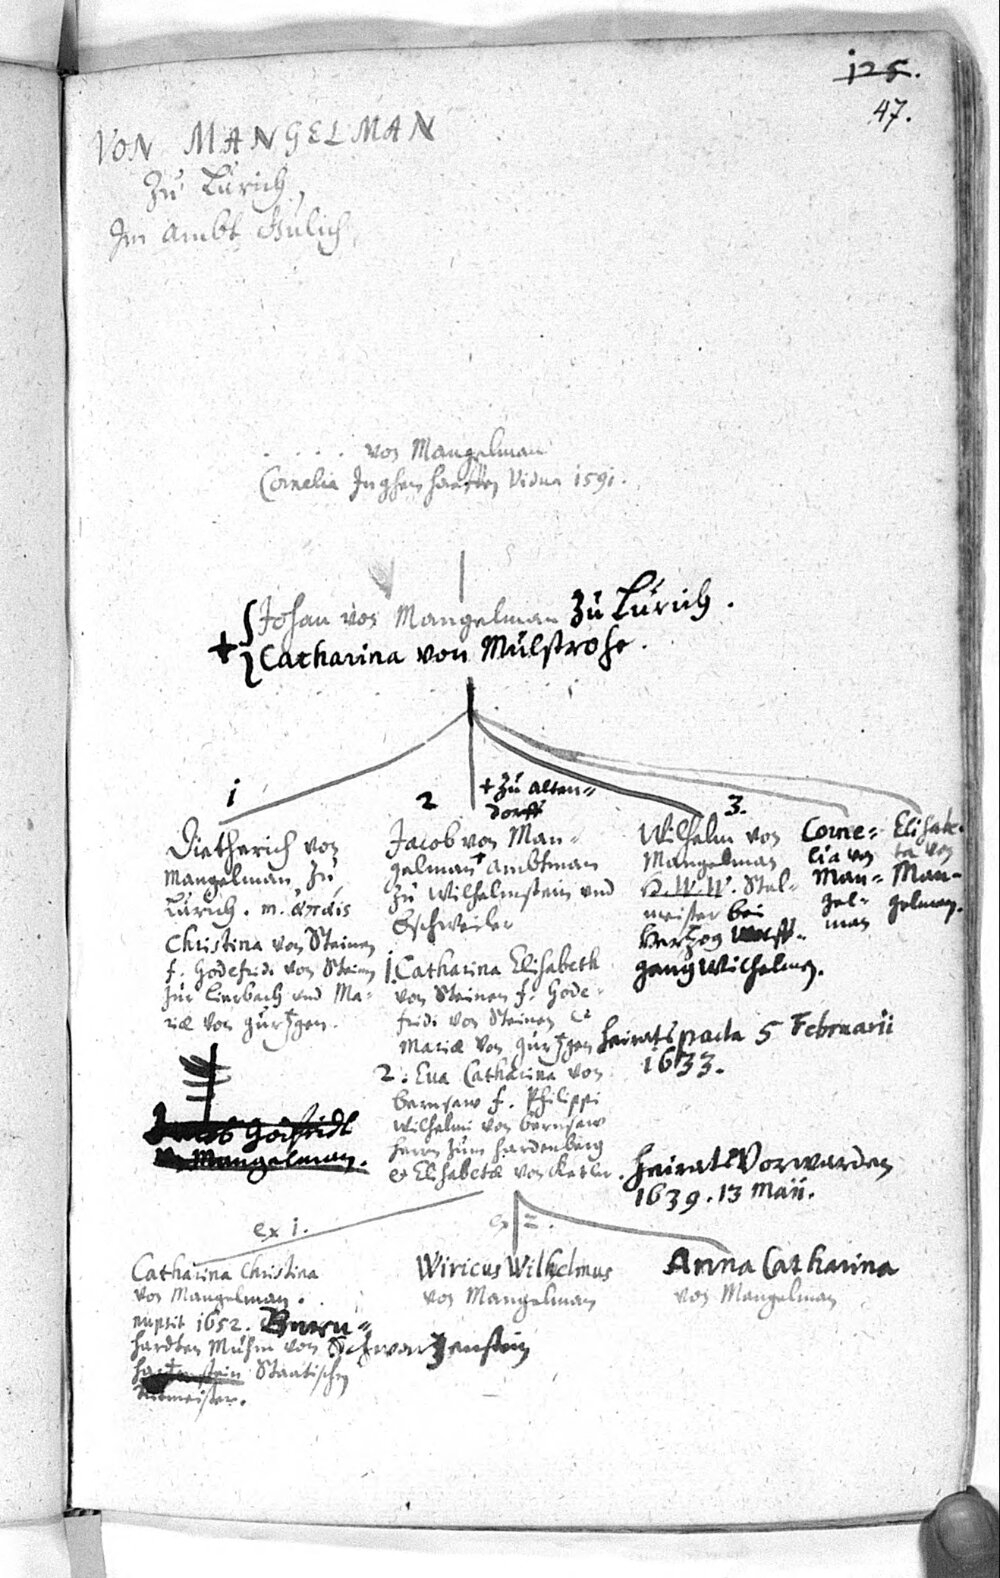 125.
47.
VON MANGELMAN
Zu Lürich,
Im Ambt Gulich,
. . . . . von Mangelman
Cornelia Inghen Vidua 1591.
Johan von Mangelman Zu Lürich.
+ Catharina von Mulstrohe.
1
Dietherich von
Mangelman, Zu
Lurich. m.
Christina von Steinen
f. Godefridi von Steinen
zur Lierbach vnd Ma-
riæ von Gurtzgen.
Goetfridt
Mangelman.
2
+ Zu Alten=
dorff
Jacob von Man-
gelman + Ambtman
Zu Wilhelmstein vnd
Eschweiler
1. Catharina Elisabeth
von Steinen f. Gode-
fridi von Steinen et
Mariæ von Gurtzgen
heirats pacta 5 Februarii
1633.
2. Eua Catharina von
Bernsaw f. Philippi
Wilhelmi von Bernsaw
Herrn Zum Hardenberg
et Elisabetæ von Ketler.
Heirats Vorwarden
1639. 13 Maii.
3.
Wilhelm von
Mangelman
Stal-
meister bei
Hertzog Wolff-
gang Wilhelmen.
Corne=
lia von
Man=
gel=
man
Elisabe-
ta von
Man-
gelman.
ex 1.
Catharina Christina
von Mangelman.
nuptit 1652. Bern=
hardten Muhm von Schwartzenstein
Staatischen
Ritmeister.
ex 2.
Wiricus Wilhelmus
von Mangelman
Anna Catharina
von Mangelman